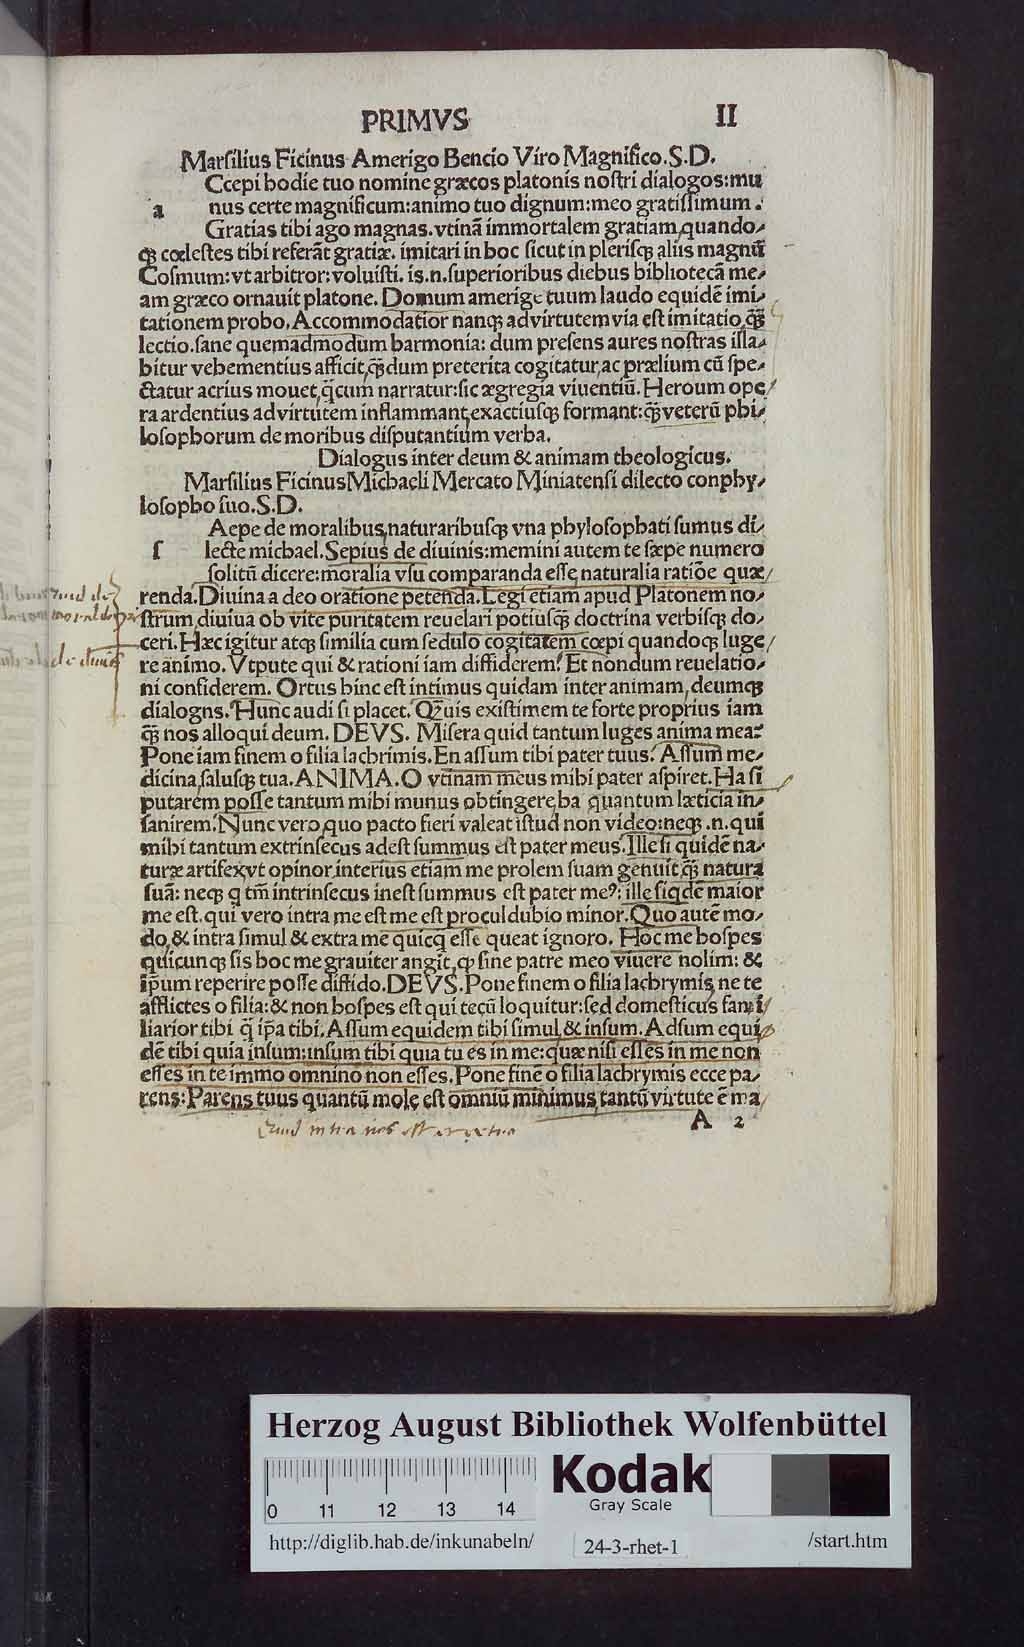 PRIMVS II
Marſilius Ficinus Amerigo Bencio Viro Magnifico.S.D.
Ccepi hodie tuo nomine græcos platonis noſtri dialogos:mu
a nus certe magnificum:animo tuo dignum:meo gratiſſimum.
Gratias tibi ago magnas.vtinā immortalem gratiam,quando⸗
ꝗ cœleſtes tibi referāt gratiæ. imitari in hoc ſicut in pleriſqꝫ aliis magnū
Coſmum:vt arbitror:voluiſti. is.n.ſuperioribus diebus bibliotecā me⸗
am græco ornauit platone. Domum amerige tuum laudo equidē imi⸗
tationem probo. Accommodatior nanqꝫ ad virtutem via eſt imitatio,qꝫ̄
lectio.ſane quemadmodum harmonia: dum preſens aures noſtras illa⸗
bitur vehementius afficit,qꝫ̄ dum preterita cogitatur,ac prælium cū ſpe⸗
ctatur acrius mouet,q̄ cum narratur:ſic ægregia viuentiū. Heroum ope/
ra ardentius ad virtutem inflammant,exactiuſqꝫ formant:qꝫ̄ veterū phi⸗
loſophorum de moribus diſputantium verba.
Dialogus inter deum & animam theologicus.
Marſilius Ficinus Michaeli Mercato Miniatenſi dilecto conphy⸗
loſopho ſuo.S.D.
Aepe de moralibus,naturaribuſqꝫ vna phyloſophati ſumus di⸗
ſ lecte michael. Sepius de diuinis:memini autem te ſæpe numero
ſolitū dicere:moralia vſu comparanda eſſe,naturalia ratiōe quæ/
renda.Diuina a deo oratione petenda.Legi etiam apud Platonem no⸗
ſtrum,diuiua ob vite puritatem reuelari potiuſqꝫ̄ doctrina verbiſqꝫ do⸗
ceri. Hæc igitur atqꝫ ſimilia cum ſedulo cogitatem cœpi quandoqꝫ luge/
re animo. Vtpute qui & rationi iam diffiderem. Et nondum reuelatio⸗
ni confiderem. Ortus hinc eſt intimus quidam inter animam,deumqꝫ
dialogns. Hunc audi ſi placet. Qꝫ̄uis exiſtimem te forte proprius iam
qꝫ̄ nos alloqui deum. DEVS. Miſera quid tantum luges anima mea?
Pone iam finem o filia lachrimis. En aſſum tibi pater tuus. Aſſum me⸗
dicina,ſaluſqꝫ tua.ANIMA.O vtinam meus mihi pater aſpiret.Ha ſi
putarem poſſe tantum mihi munus obtingere,ha quantum læticia in⸗
ſanirem. Nunc vero,quo pacto fieri valeat iſtud non video:neqꝫ .n. qui
mihi tantum extrinſecus adeſt ſummus eſt pater meus. Ille ſi quidē na⸗
turæ artifex,vt opinor,interius etiam me prolem ſuam genuit,qꝫ̄ natura
ſuā: neqꝫ q tm̄ intrinſecus ineſt ſummus eſt pater meꝰ: ille ſiqdē maior
me eſt.qui vero intra me eſt me eſt procul dubio minor.Quo autē mo⸗
do,& intra ſimul & extra me quicq̄ eſſe queat ignoro. Hoc me hoſpes
quicunqꝫ ſis hoc me grauiter angit,ꝙ ſine patre meo viuere nolim: &
ip̄um reperire poſſe diffido.DEVS.Pone finem o filia lachrymis,ne te
afflictes o filia:& non hoſpes eſt qui tecū loquitur:ſed domeſticus fami
liarior tibi q̄ ip̄a tibi. Aſſum equidem tibi ſimul,& inſum.Adſum equi
dē tibi quia inſum:inſum tibi quia tu es in me:quæ niſi eſſes in me non
eſſes in te immo omnino non eſſes.Pone finē o filia lachrymis ecce pa⸗
rens:Parens tuus quantū mole eſt omniū minimus,tantū virtute ē ma
A 2
Herzog August Bibliothek Wolfenbüttel
Kodak
Gray Scale
0 11 12 13 14
http://diglib.hab.de/inkunabeln/ 24-3-rhet-1 /start.htm